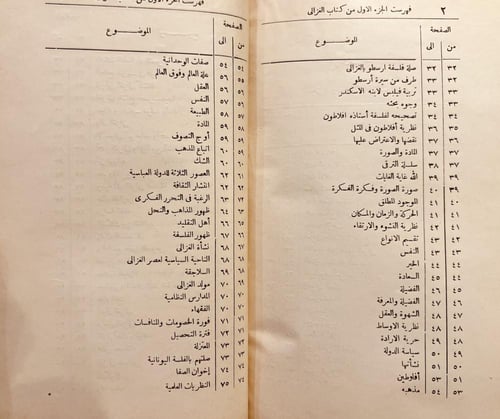 ٢ فهرست الجزء الاول من كتاب الغزالى
الصفحة
من الى الموضوع
٣٢ ٣٢ صلة فلسفة ارسطو بالغزالى
٣٢ ٣٣ طرف من سيرة أرسطو
٣٣ ٣٣ تربية فيلبس لابنه الاسكندر
٣٣ ٣٤ وجوه بحثه
٣٤ ٣٥ تصحيحه لفلسفة أستاذه افلاطون
٣٥ ٣٦ نظرية أفلاطون فى المثل
٣٦ ٣٧ نقضها والاعتراض عليها
٣٧ ٣٧ المادة والصورة
٣٧ ٣٨ سلسلة الترقى
٣٨ ٣٩ الله غاية الغايات
٣٩ ٤٠ صورة الصورة وفكرة الفكرة
٤٠ ٤١ الموجود المطلق
٤١ ٤١ الحركة والزمان والمكان
٤١ ٤٢ نظرية النشوء والارتقاء
٤٢ ٤٣ تقسيم الانواع
٤٣ ٤٣ النفس
٤٤ ٤٤ الخير
٤٤ ٤٥ السعادة
٤٥ ٤٦ الفضيلة
٤٦ ٤٧ الفضيلة والمعرفة
٤٧ ٤٨ الشهوة والعقل
٤٨ ٤٨ نظرية الاوساط
٤٨ ٤٩ حرية الارادة
٤٩ ٥٠ سياسة الدولة
٥٠ ٥١ نشأتها
٥١ ٥٣ أفلوطين
٥٣ ٥٤ مذهبه
فهرست الجزء الاول من
الصفحة
من الى الموضوع
٥٤ ٥٤ صفات الوحدانية
٥٤ ٥٥ علة العالم وفوق العالم
٥٥ ٥٦ العقل
٥٦ ٥٧ النفس
٥٧ ٥٨ الطبيعة
٥٨ ٥٨ المادة
٥٨ ٥٩ أوج التصوف
٥٩ ٦٠ اتباع المذهب
٦٠ ٦٠ الشك
٦١ ٦٢ العصور الثلاثة للدولة العباسية
٦٢ ٦٢ انتشار الثقافة
٦٢ ٦٣ الرغبة فى التحرر الفكرى
٦٣ ٦٤ ظهور المذاهب والنحل
٦٥ ٦٦ أهل التقليد
٦٦ ٦٧ ظهور الفلسفة
٦٧ ٦٨ نشأة الغزالى
٦٨ ٦٨ الناحية السياسية لعصر الغزالى
٦٨ ٦٩ السلاجقة
٦٩ ٧٠ مولد الغزالى
٧٠ ٧٠ المدارس النظامية
٧٠ ٧٠ الفقهاء
٧١ ٧١ فورة الخصومات والمنافسات
٧١ ٧٢ فترة التحصيل
٧٢ ٧٣ المعتزلة
٧٣ ٧٣ صلتهم بالفلسفة اليونانية
٧٤ ٧٤ إخوان الصفا
٧٤ ٧٥ النظريات العلمية